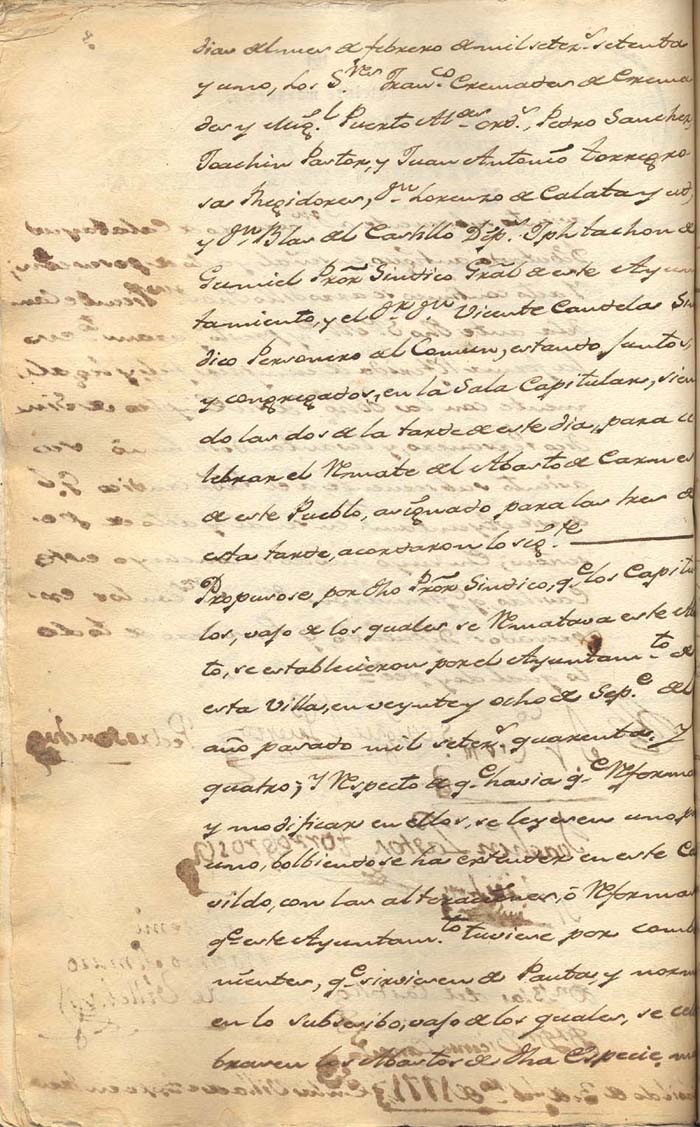 dias del mes de febrero de mil seter.s setenta
y uno, los S.res Fran.co Cremades de Crema
des y Mig.l Puerto Al.des ord.s, Pedro Sanchez,
Joachin Pastor, y Juan Antonio Torregro-
sas Regidores, D.n Lorenzo de Calatayud,
y D.n Blas del Castillo Dip.s Jph tachon de
Gumiel Pror Sindico Gral de este Ayun
tamiento, y el D.r D.n Vicente Candelas Sin
dico Personero del Comun, estando juntos,
y congregados, en la Sala Capitular, sien
do las dos de la tarde de este dia, para ce
lebrar el Remate del Abasto de Carnes
de este Pueblo, asignado para las tres de
esta tarde, acordaron lo sig.te
Propusose por dho Pror Sindico, q.e los Capitu
los, vajo de los quales se Rematava este Abas
to, se establecieron por el Ayuntam.to de
esta Villa, en veynte y ocho de Sep.e del
año pasado mil seter.s quarenta y
quatro; Y Respecto de q.e havia q.e Reformar
y modificar en ellos, se leyesen uno, por
uno, bolbiendose ha extender en este Ca
vildo, con las alteraciones, ó Reformas
q.e este Ayuntam.to tuviese por combe
nientes, q.e sirviesen de Pauta, y norma
en lo subsecibo, vajo de los quales, se cele
brasen los Abastos de dha Especie